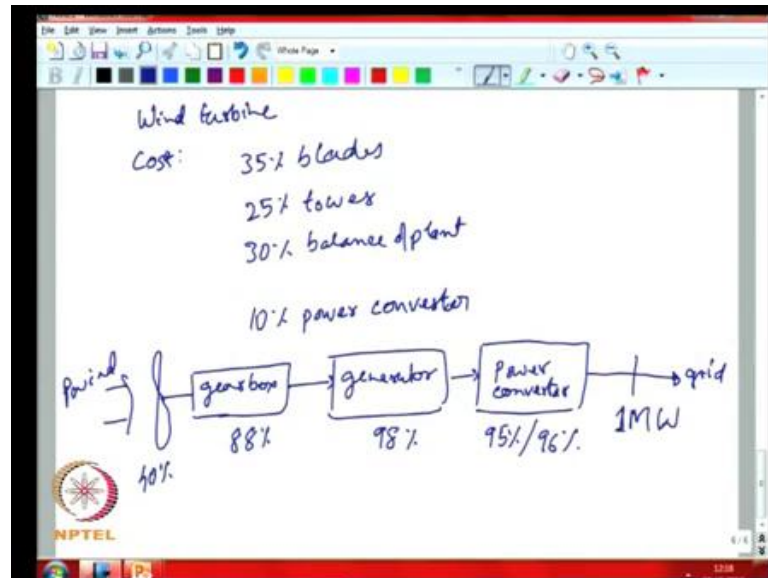 File Edit View Insert Actions Tools Help
Whole Page
B I
Wind turbine
Cost: 35% blades
25% tower
30% balance of plant
10% power convertor
Pwind gearbox generator Power converter grid
40% 88% 98% 95%/96% 1MW
NPTEL
6/6
12:18